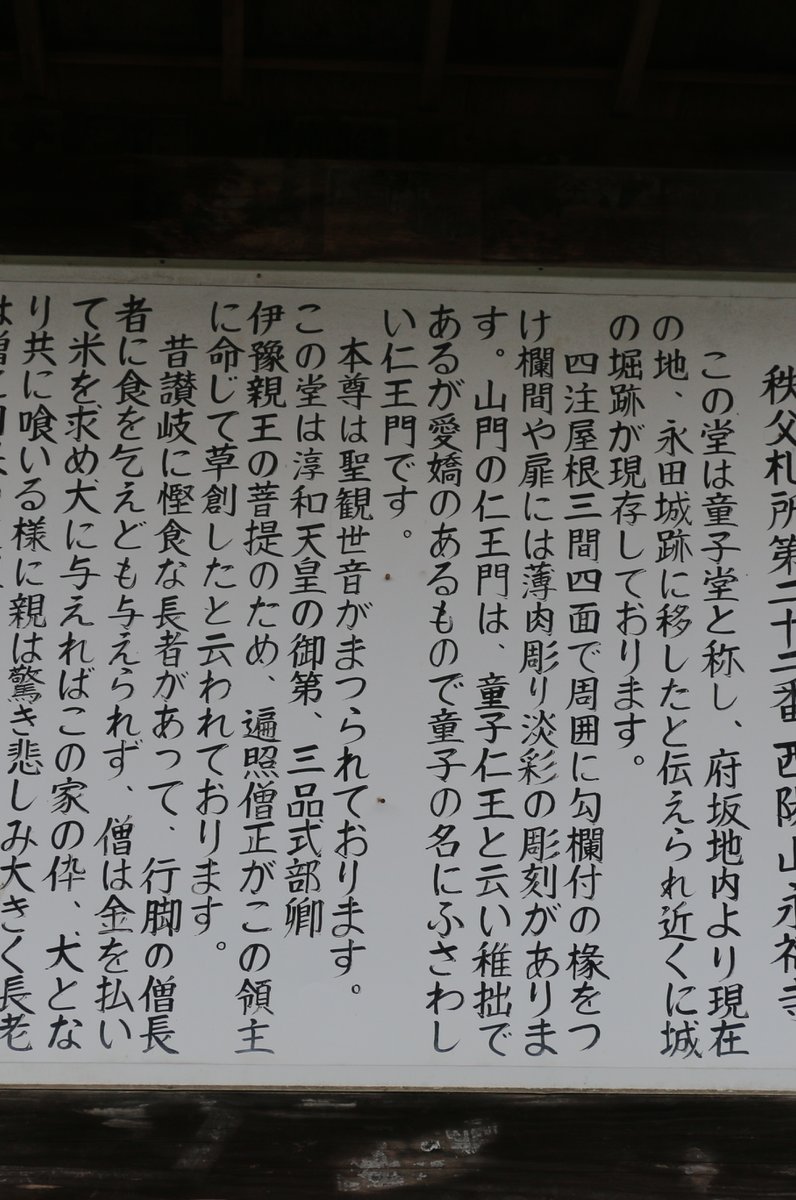 秩父札所第二十二番西陽山永福寺
この堂は童子堂と称し、府坂地内より現在
の地、永田城跡に移したと伝えられ近くに城
の堀跡が現存しております。
四注屋根三間四面で周囲に勾欄付の椽をつ
け欄間や扉には薄肉彫り淡彩の彫刻がありま
す。山門の仁王門は、童子仁王と云い稚拙で
あるが愛嬌のあるもので童子の名にふさわし
い仁王門です。
本尊は聖観世音がまつられております。
この堂は淳和天皇の御第、三品式部卿
伊豫親王の菩提のため、遍照僧正がこの領主
に命じて草創したと云われております。
昔讃岐に慳食な長者があって、行脚の僧長
者に食を乞えども与えられず、僧は金を払い
て米を求め犬に与えればこの家の倅、犬とな
り共に喰いる様に親は驚き悲しみ大きく長老